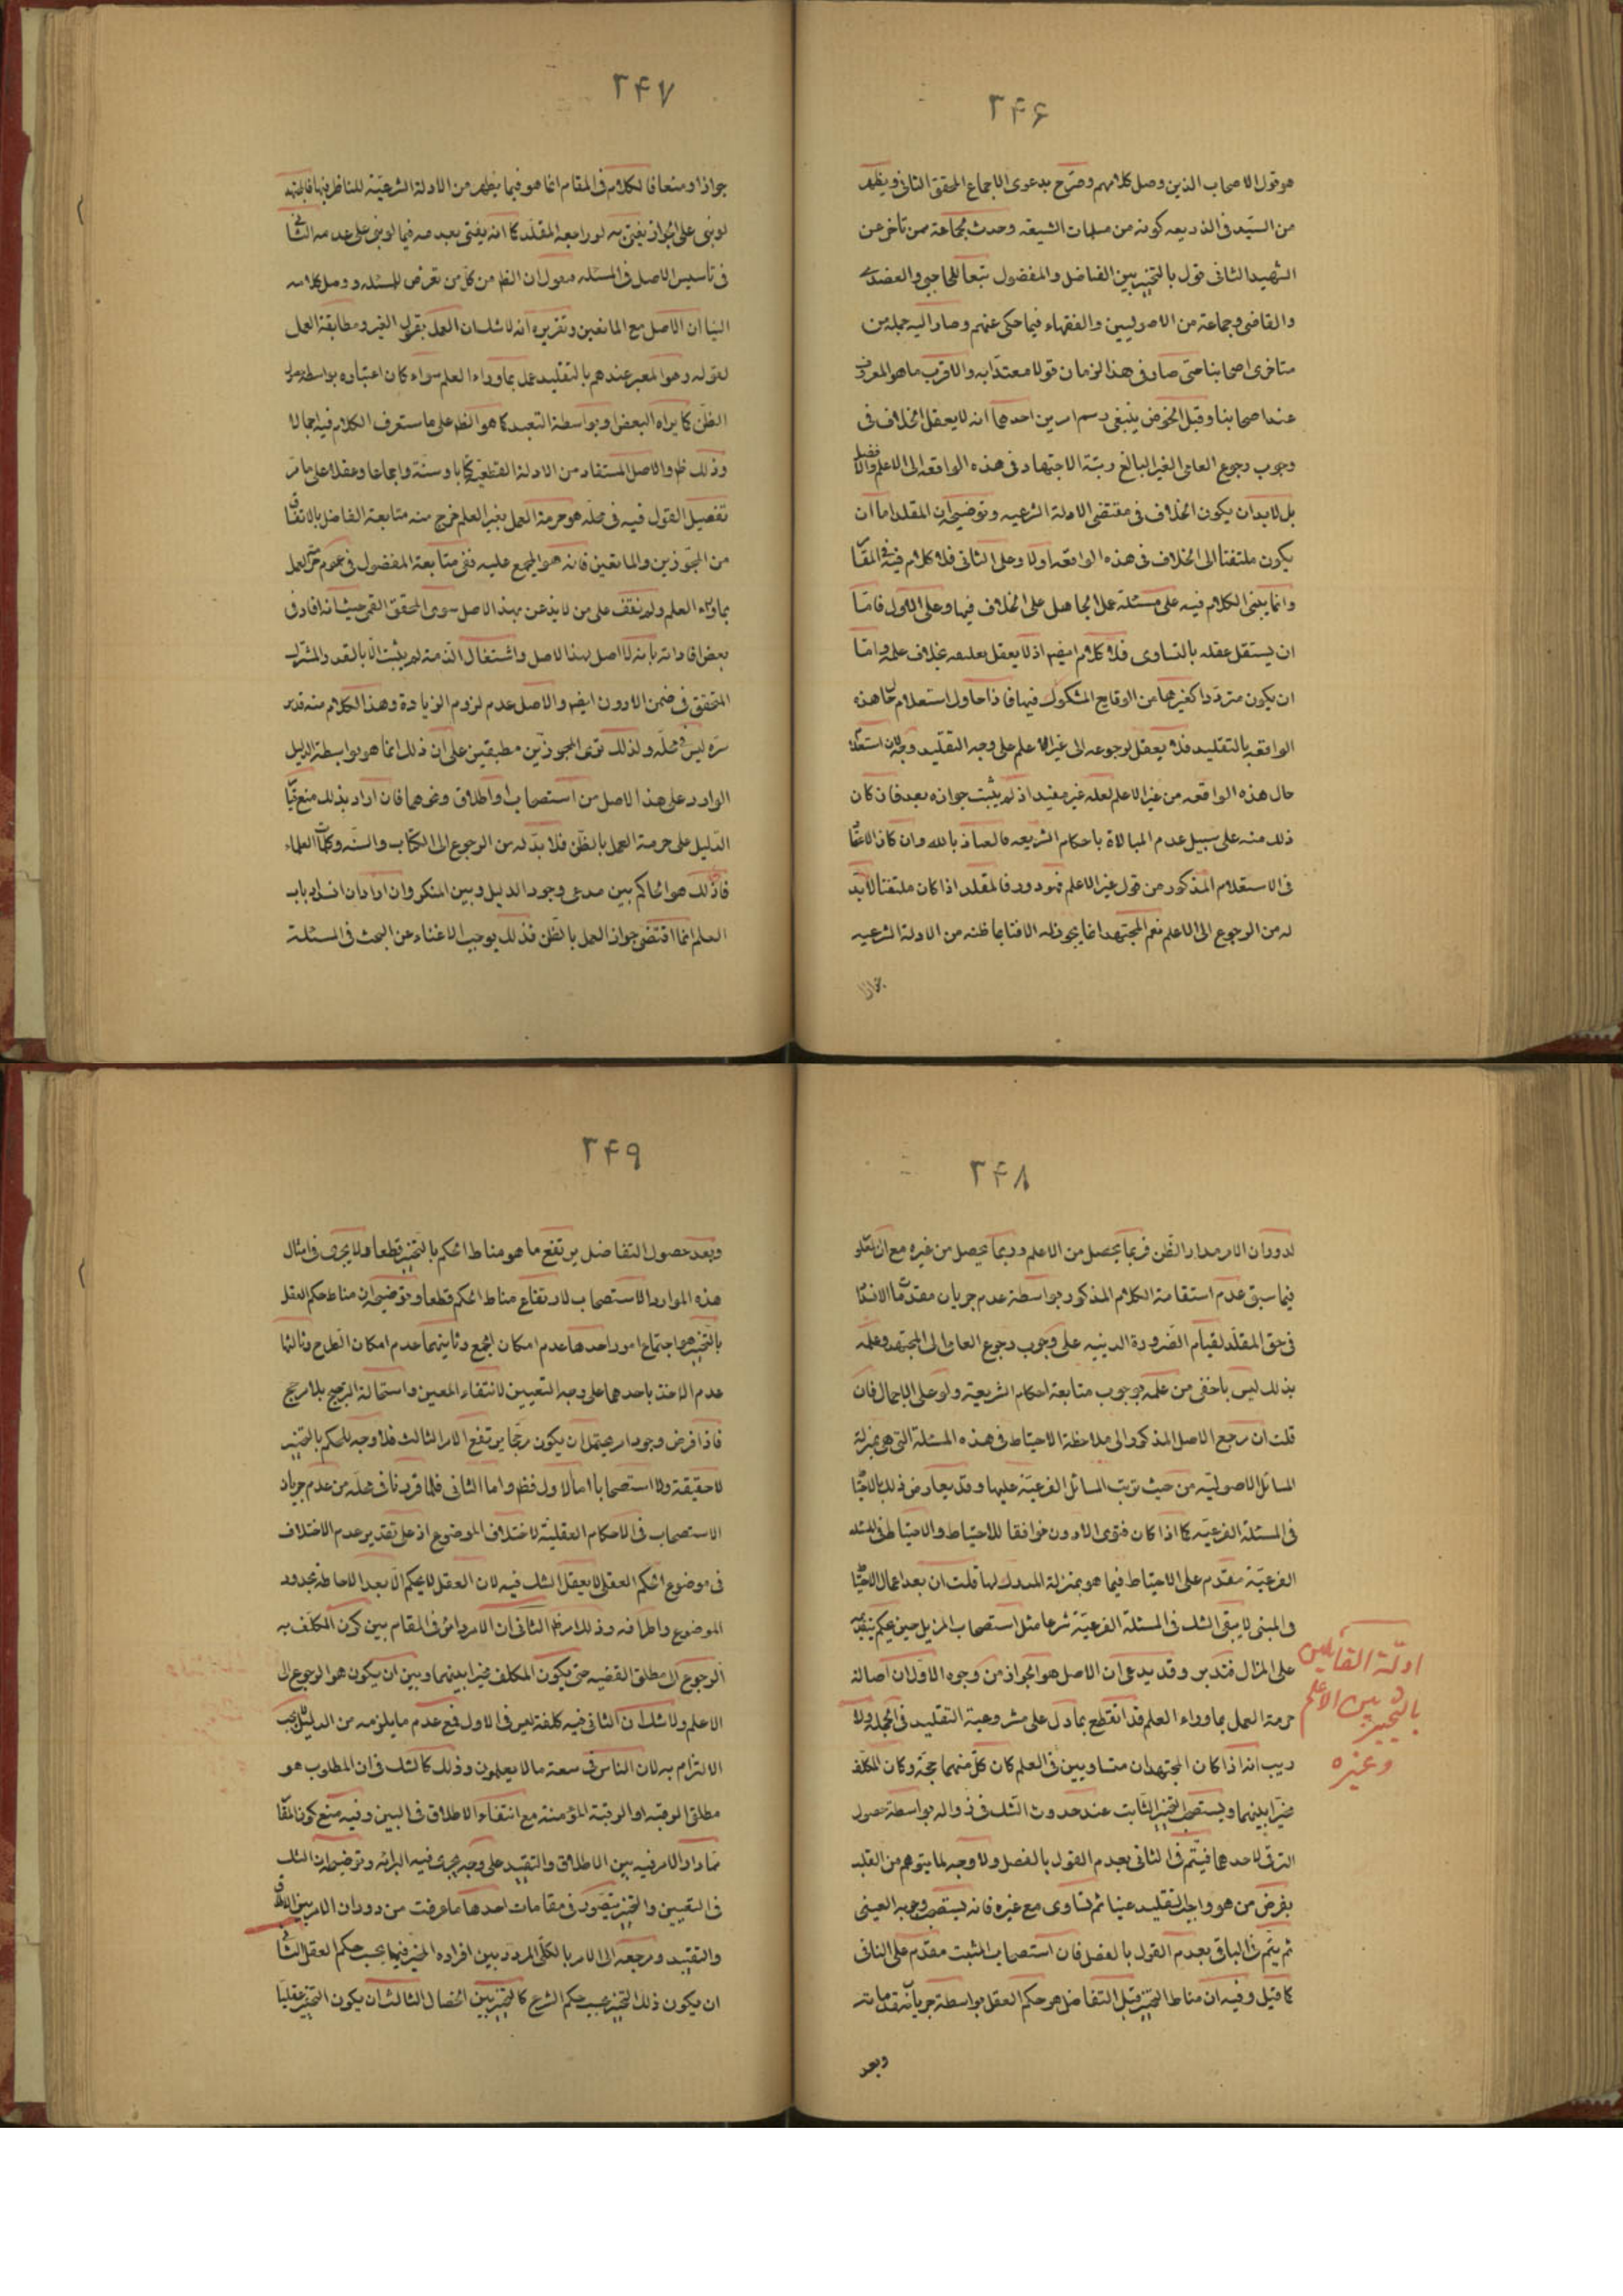 ٢۴۶
هو قول الاصحاب الذين وصل كلامهم وصرّح بدعوى الاجماع المحقق الثانى ويظهر
من السّيد فى الذريعه كونه من مسلمات الشيعه وحدث لجماعة ممن تاخر عن
الشهيد الثانى قول بالتخيير بين الفاضل والمفضول تبعا للحاجبى والعضدى
والقاضى وجماعة من الاصوليين والفقهاء فيما حكى عنهم وصار اليه جملة من
متاخرى اصحابنا حتى صار فى هذا الزمان قولا معتدّا به والاقرب ما هو المعروف
عند اصحابنا وقبل الخوض ينبغى رسم امرين احدهما انه لا يعقل الخلاف فى
وجوب رجوع العامى الغير البالغ رتبة الاجتهاد فى هذه الواقعه الى الاعلم والافضل
بل لا بد ان يكون الخلاف فى مقتضى الادلة الشرعيه وتوضيحه ان المقلد اما ان
يكون ملتفتا الى الخلاف فى هذه الواقعه اولا وعلى الثانى فلا كلام فيه فى المقا
وانما يبنى الكلام فيه على مسئلة عمل الجاهل على الخلاف فيها وعلى الاول فامّا
ان يستقل عقله بالتساوى فلا كلام ايضا اذ لا يعقل تعليمه بخلاف علمه وامّا
ان يكون متردّدا كغيرها من الوقايع المشكوك فيها فاذا حاول استعلام حال هذه
الواقعه بالتقليد فلا يعقل رجوعه الى غير الاعلم على وجه التقليد لان استعلا
حال هذه الواقعه من غير الاعلم لعله غير مفيد اذ لم يثبت جوازه بعد فان كان
ذلك منه على سبيل عدم المبالاة باحكام الشريعه فالعياذ بالله وان كان
فى الاستعلام المذكور من قول غير الاعلم فهو دور فالمقلد اذا كان ملتفتا لا بد
له من الرجوع الى الاعلم نعم المجتهد انما يجوز له الافتاء بما ظنه من الادلة الشرعيه
جوازا
٢۴٧
جوازا ومنعا فالكلام فى المقام انما هو فيما يظهر من الادلة الشرعيّة للناظر فيها فالمجتهد
لو بنى على الجواز يفتى به لو راجعه المقلّد كما انه يفتى بعدمه فيما لو بنى على عدمه الثانى
فى تاسيس الاصل فى المسئله فنقول ان الظ من كل من تعرض للمسئله ووصل كلامه
الينا ان الاصل مع المانعين وتقريره انه لا شك ان العمل بقول الغير ومطابقة العمل
لقوله وهو المعبر عندهم بالتقليد عمل بما وراء العلم سواء كان اعتباره بواسطة
الظن كما يراه البعض او بواسطة التعبد كما هو الظ على ما ستعرف الكلام فيه اجمالا
وذلك ظ والاصل المستفاد من الادلة القطعية كتابا وسنّة واجماعا وعقلا على ما مرّ
تفصيل القول فيه فى محلّه هو حرمة العمل بغير العلم خرج منه متابعة الفاضل بالاتفاق
من المجوزين والمانعين فانه هو المجمع عليه فبقى متابعة المفضول فى عموم حرمة العمل
بما وراء العلم ولم نقف على من لا يذعن بهذا الاصل سوى المحقق القمى حيث انه افاد فى
بعض افاداته بانه لا اصل لهذا الاصل واشتغال الذمة لم يثبت الا بالقدر المشترك
المتحقق فى ضمن الادون ايضا والاصل عدم لزوم الزيادة وهذا الكلام منه قدس
سره ليس فى محلّه ولذلك ترى المجوزين مطبقين على ان ذلك انما هو بواسطة الدليل
الوارد على هذا الاصل من استصحاب او اطلاق ونحوهما فان اراد بذلك منع قيا
الدّليل على حرمة العمل بالظّن فلا بدّ له من الرجوع الى الكتاب والسنّه وكلمات العلماء
فان ذلك هو الحاكم بين مدعى وجود الدليل وبين المنكر وان اراد ان انسداد باب
العلم انما اقتضى جواز العمل بالظن فذلك يوجب الاغناء عن البحث فى المسئلة
٢۴٨
لدوران الامر مدار الظّن فربما يحصل من الاعلم وربما يحصل من غيره مع ان
فيما سبق عدم استقامة الكلام المذكور بواسطة عدم جريان مقدمات الانسدا
فى حق المقلّد لقيام الضرورة الدينيه على وجوب رجوع العامى الى المجتهد وعلمه
بذلك ليس باخفى من علمه بوجوب متابعة احكام الشريعة ولو على الاجمال فان
قلت ان مرجع الاصل المذكور الى ملاحظة الاحتياط فى هذه المسئلة التى هى بمنزلة
المسائل الاصوليّه من حيث ترتب المسائل الفرعيّه عليها وقد يعارض ذلك بالاحتيا
فى المسئلة الفرعيّه كما اذا كان فتوى الادون موافقا للاحتياط والاحتياط فى المسئله
الفرعيّه مقدم على الاحتياط فيما هو بمنزلة المدرك لها قلت ان بعد اعمال الاحتيا
فى المبنى لا يبقى الشك فى المسئلة الفرعيّة شرعا مثل استصحاب المزيل حين يحكم بتقدمه
على المزال فتدبر وقد يدعى ان الاصل هو الجواز من وجوه الاول ان اصالة
حرمة العمل بما وراء العلم قد انقطع بما دل على مشروعية التقليد فى الجملة ولا
ريب انه اذا كان المجتهدان متساويين فى العلم كان كل منهما حجّة وكان المكلف
مخيّرا بينهما ويستصحب التخيير الثابت عند حدوث الشك فى زواله بواسطة حصول
الترقى لاحدهما فيتم فى الثانى بعدم القول بالفصل ولا وجه لما يتوهم من القلب
بفرض من هو واجب التقليد عينا ثم تساوى مع غيره فانه يستصحب وجوبه العينى
ثم يتم فى الباقى بعدم القول بالفصل فان استصحاب المثبت مقدم على النافى
كما قيل وفيه ان مناط التخيير قبل التفاضل هو حكم العقل بواسطة جريان مقدماته
ادلّة القائلين
بالتخيير بين الاعلم
وغيره
وبعد
٢۴٩
وبعد حصول التفاضل يرتفع ما هو مناط الحكم بالتخيير قطعا ولا يجرى فى امثال
هذه الموارد الاستصحاب لارتفاع مناط الحكم قطعا وتوضيحه ان مناط حكم العقل
بالتخيير هو اجتماع امور احدها عدم امكان الجمع وثانيهما عدم امكان الطرح وثالثها
عدم الاخذ باحدهما على وجه التعيين لانتفاء المعين واستحالة الترجيح بلا مرجح
فاذا فرض وجود امر يحتمل ان يكون مرجّحا يرتفع الامر الثالث فلا وجه للحكم بالتخيير
لا حقيقة ولا استصحابا اما الاول فظ واما الثانى فلما قررنا فى محلّه من عدم جريان
الاستصحاب فى الاحكام العقليّة لاختلاف الموضوع اذ على تقدير عدم الاختلاف
فى موضوع الحكم العقلى لا يعقل الشك فيه لان العقل لا يحكم الّا بعد الاحاطة بحدود
الموضوع واطرافه وذلك امر ظ الثانى ان الامر دائر فى المقام بين كون المكلف به
الرجوع الى مطلق الفقيه حتى يكون المكلف مخيرا بينهما وبين ان يكون هو الرجوع الى
الاعلم ولا شك ان الثانى فيه كلفة ليس فى الاول فمع عدم ما يلزمه من الدليل لا يجب
الالتزام به لان الناس فى سعة ما لا يعلمون وذلك كالشك فى ان المطلوب هو
مطلق الرقبه او الرقبة المؤمنة مع انتفاء الاطلاق فى البين وفيه منع كون المقا
مما دار الامر فيه بين الاطلاق والتقييد على وجه يجرى فيه البرائه وتوضيحه ان الشك
فى التعيين والتخيير يتصور فى مقامات احدها ما عرفت من دوران الامر بين الاطلاق
والتقييد ومرجعه الى الامر بالكلّى المردد بين افراده المخير فيها بحسب حكم العقل الثانى
ان يكون ذلك التخيير بحسب حكم الشرع كالتخيير بين الخصال الثالث ان يكون التخيير عقليا